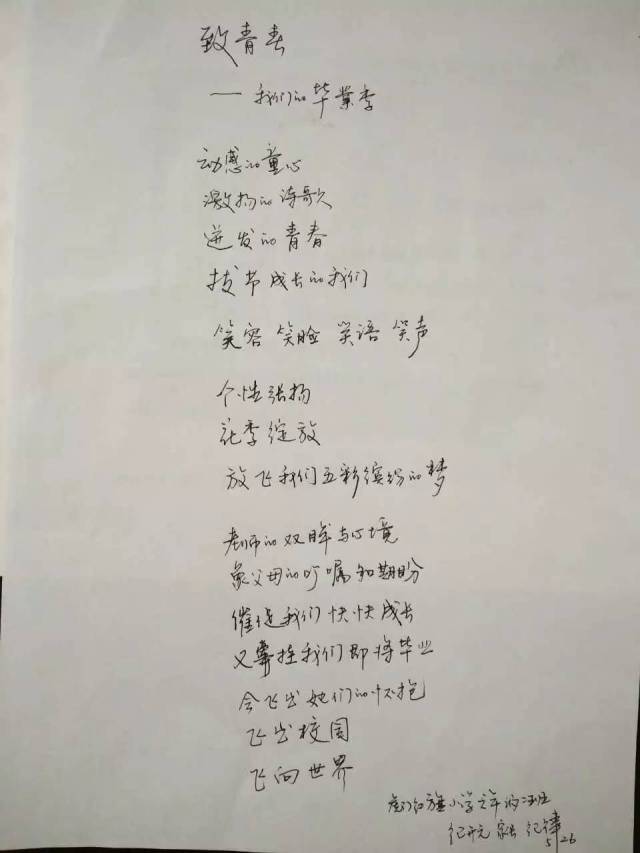 致青春
——我们的毕业季
动感的童心
激扬的诗歌
迸发的青春
拔节成长的我们
笑容 笑脸 笑语 笑声
个性张扬
花季绽放
放飞我们五彩缤纷的梦
老师的双眸与心境
象父母的叮嘱和期盼
催促我们快快成长
又牵挂我们即将毕业
会飞出她们的怀抱
飞出校园
飞向世界
红旗小学六年
纪开元 家长 纪
5/26